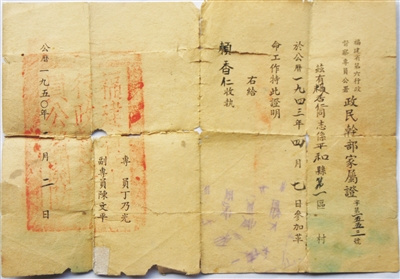 福建省第六行政
督察專員公署
政民幹部家屬證
茲有賴香仁同志係平和縣第一區 村
於公曆一九四三年四月七日參加革
命工作持此證明
右給
賴香仁收執
專員丁乃光
副專員陳文平
公曆一九五〇年 月二日